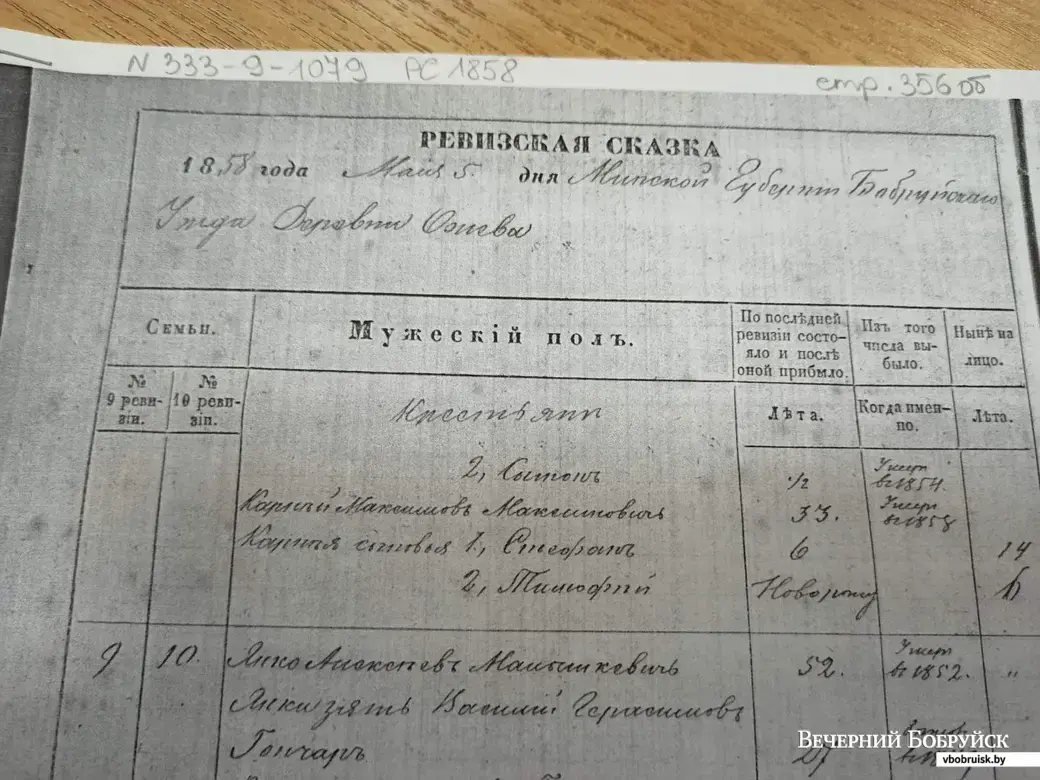 N 333-9-1079 РС 1858
стр. 356 об
РЕВИЗСКАЯ СКАЗКА
1858 года Маія 5. дня Минской Губерніи Бобруйскаго
Уезда Деревни
Семьи.
Мужескій полъ.
По послѣдней ревизіи состояло и послѣ оной прибыло.
Изъ того числа выбыло.
Нынѣ на лицо.
№ 9 ревизіи.
№ 10 ревизіи.
Крестьяне
Лѣта.
Когда именно.
Лѣта.
2, Сымонъ ½ Умеръ в 1854.
Карпѣй Максимовъ Максимовичъ 33. Умеръ в 1858
Карпѣя сыновья 1, Стефанъ 6 14
2, Тимофей Новорожд 6
9 10. Янко Алексѣевъ Малышкевичъ 52. Умеръ в 1852. „
Янки зять Василій Герасимовъ
Гончаръ 27
ВЕЧЕРНИЙ БОБРУЙСК
vbobruisk.by